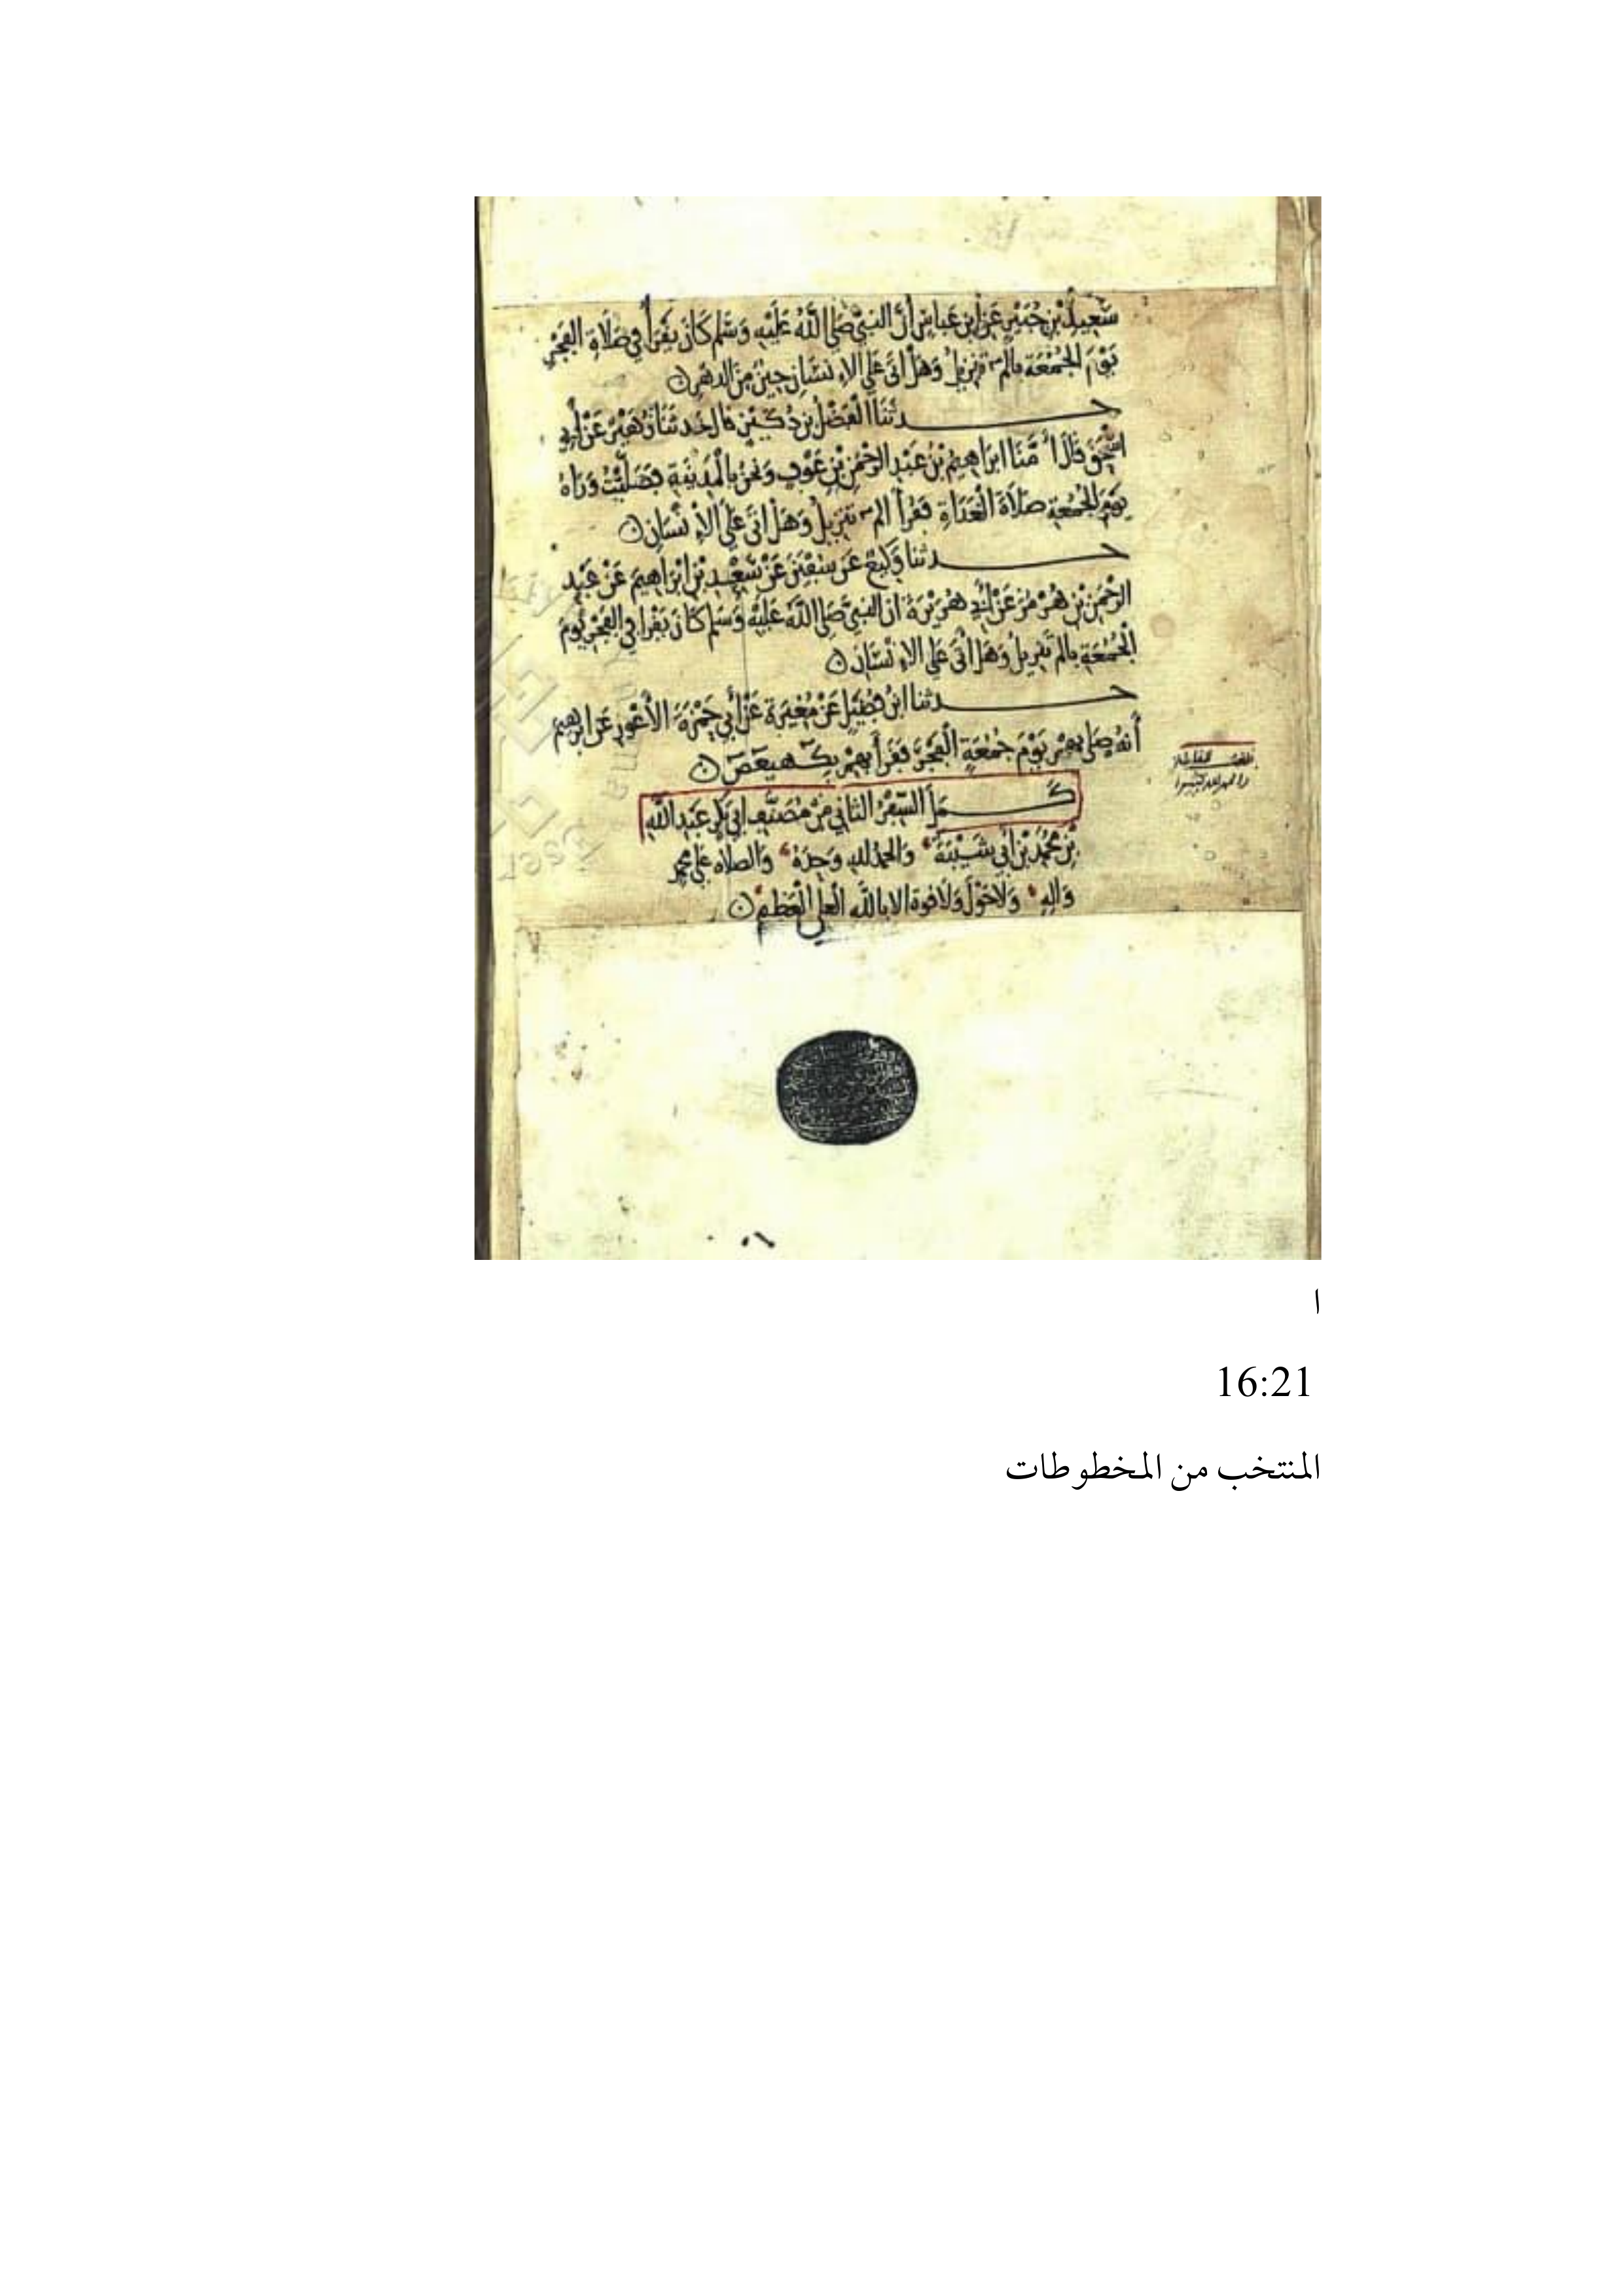 سَعِيدِ بْنِ جُبَيْرٍ عَنْ ابْنِ عَبَّاسٍ أَنَّ النَّبِيَّ صَلَّى اللَّهُ عَلَيْهِ وَسَلَّمَ كَانَ يَقْرَأُ فِي صَلَاةِ الفَجْرِ
يَوْمَ الْجُمُعَةِ بِالم تَنْزِيلُ وَهَلْ أَتَى عَلَى الإِنْسَانِ حِينٌ مِنَ الدَهْرِ
حدثنَا الْفَضْلُ بْنُ دُكَيْنٍ قَالَ حَدثَنَا زُهَيْرٌ عَنْ أَبِي
إِسْحَقَ قَالَ أَمَّنَا ابرَاهِيمُ بْنُ عَبْدِ الرَّحْمَنِ بْنِ عَوْفٍ وَنَحْنُ بِالْمَدِينَةِ فَصَلَّيْتُ وَرَاهُ
يَوْمَ الْجُمُعَةِ صَلَاةَ الْغَدَاةِ فَقَرَأَ الم تَنْزِيلُ وَهَلْ اتَى عَلَى الْإِنْسَانِ
حدثنا وَكِيعٌ عَنْ سُفْيَنَ عَنْ سَعْدِ بْنِ ابْرَاهِيمَ عَنْ عَبْدِ
الرَّحْمَنِ بْنِ هُرْمُزَ عَنْ أَبِي هُرَيْرَةَ أن النَّبِيَّ صَلَّى اللَّهُ عَلَيْهِ وَسَلَّمَ كَانَ يَقْرَا فِي الْفَجْرِ يَوْمَ
الْجُمُعَةِ بالم تَنْزِيلُ وَهَلْ أَتَى عَلَى الإِنْسَانِ
حدثنا ابْنُ فُضَيْلٍ عَنْ مُغِيرَةَ عَنْ أَبِي حَمْزَةَ الْأَعْوَرِ عَنْ ابرهِيمَ
أَنهُ صَلَّى بِهِمْ يَوْمَ جُمُعَةٍ الْفَجْرَ فَقَرَأَ بِهِمْ بِكهيعص
كَمَلَ السِّفْرُ الثَانِي مِنْ مُصَنَّفِ ابِي بَكْرٍ عَبْدِ اللَّهِ
بْنِ مُحَمَّدِ بْنِ أَبِي شَيْبَةَ وَالحَمْدُ لله وَحْدَهُ وَالصلاه عَلَى محمد
وَالِهِ وَلَا حَوْلَ وَلَا قوة الا بِاللَّهِ الْعَلِي الْعَظِيمِ
ا
16:21
المنتخب من المخطوطات